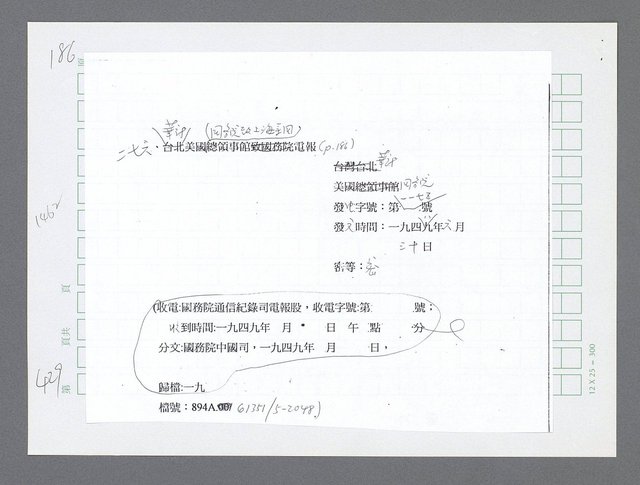 186
華府 (國務院致上海美國)
二七六、台北美國總領事館致國務院電報 (p.186)
台灣台北 華府
美國總領事館 國務院
發电字號：第一一七三號
發文時間：一九四九年六月
三十日
密等：密
(收電:國務院通信紀錄司電報股，收電字號:第 號：
收到時間:一九四九年 月 日 午 點 分
分文:國務院中國司，一九四九年 月 日，
歸檔:一九
檔號：894A.00/ 61351/5-2048.)
1462
頁
頁共
429
第
12 X 25 = 300